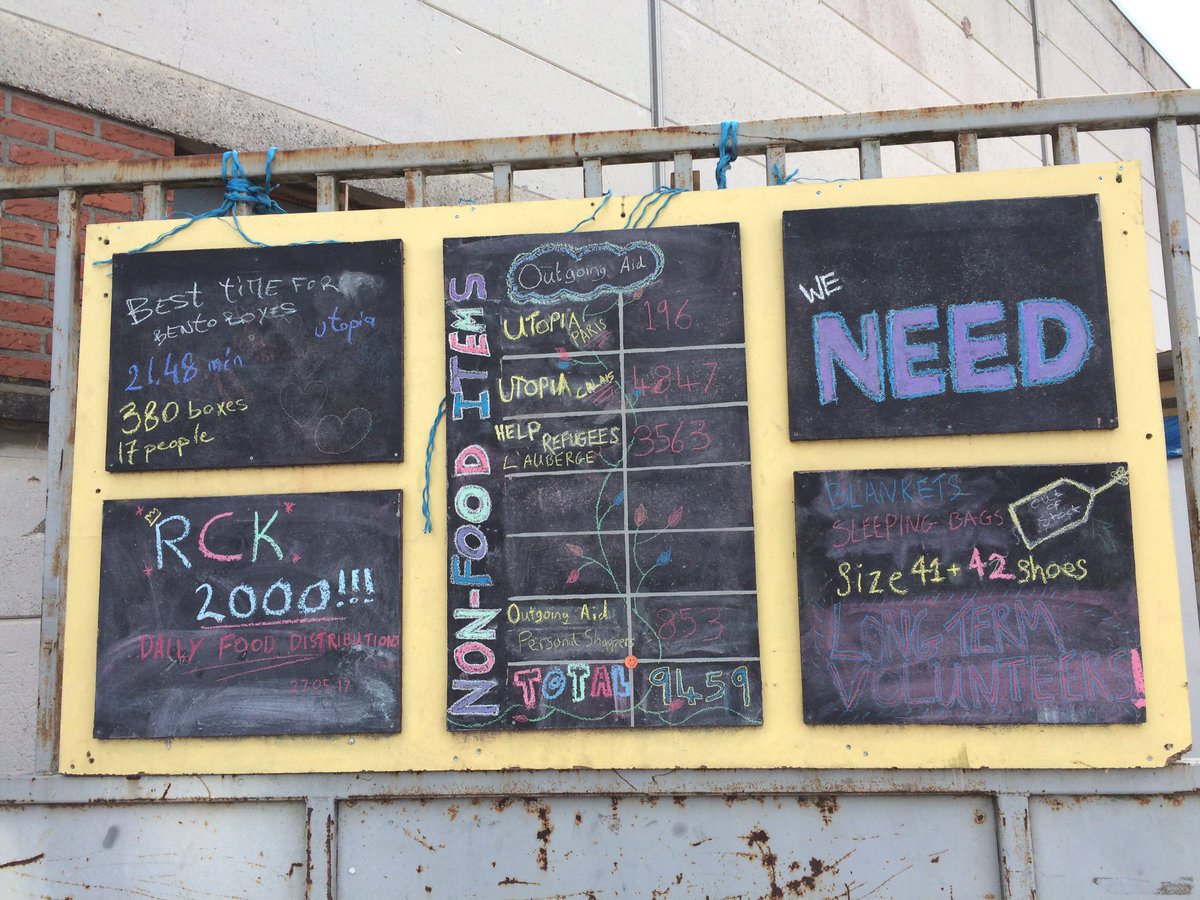 BEST TIME FOR
BENTO BOXES
utopia
21.48 min
380 boxes
17 people
RCK
2000!!!
DAILY FOOD DISTRIBUTIONS
27.05.17
NON-FOOD ITEMS
Outgoing Aid
UTOPIA PARIS 196
UTOPIA CALAIS 4847
HELP REFUGEES
L'AUBERGE 3563
Outgoing Aid
Personal Shoppers 853
TOTAL 9459
WE
NEED
BLANKETS
SLEEPING BAGS
Out of Stock
Size 41+42 shoes
LONG TERM
VOLUNTEERS!